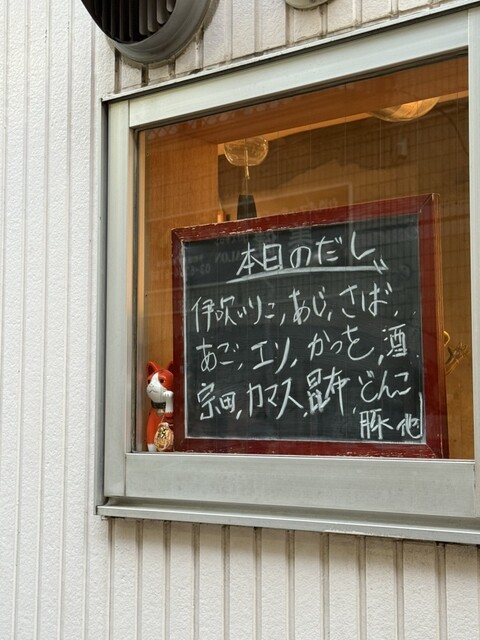 本日のだし
伊吹いりこ,あじ,さば,
あご,エソ,かつを,酒,
宗田,カマス,昆布,どんこ
豚 他